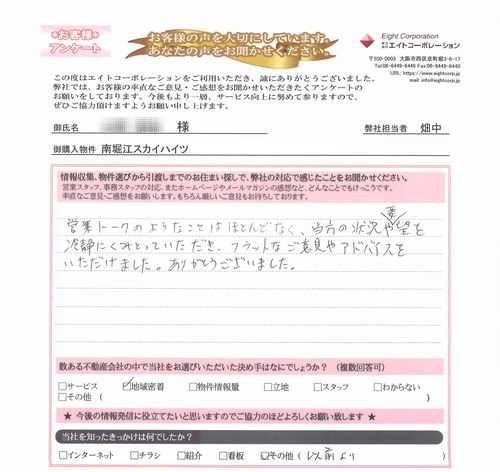 *お客様*
アンケート
お客様の声を大切にしています。
あなたの声をお聞かせください。
Eight Corporation
株式会社エイトコーポレーション
〒550-0003 大阪市西区京町堀3-6-17
Tel:06-6449-6449 Fax:06-6449-6440
URL: https://www.eightcorp.jp
mail: info@eightcorp.jp
この度はエイトコーポレーションをご利用いただき、誠にありがとうございました。
弊社では、お客様の率直なご意見・ご感想をお聞かせいただきたくアンケートの
お願いをしております。今後もより一層、サービス向上に努めて参りますので、
ぜひご協力頂けますようお願い申し上げます。
御氏名 様 弊社担当者 畑中
御購入物件 南堀江スカイハイツ
情報収集、物件選びから引渡しまでのお住まい探しで、弊社の対応で感じたことをお聞かせください。
営業スタッフ、事務スタッフの対応、またホームページやメールマガジンの感想など、どんなことでもけっこうです。
率直なご意見・ご感想をお願いします。もちろん厳しいご意見もお待ちしております。
営業トークのようなことはほとんどなく、当方の状況や要望を
冷静にくみとっていただき、フラットなご意見やアドバイスを
いただけました。ありがとうございました。
数ある不動産会社の中で当社をお選びいただいた決め手はなにでしょうか? (複数回答可)
□サービス ☑地域密着 □物件情報量 □立地 □スタッフ □わからない
□その他 ( )
★ 今後の情報発信に役立てたいと思いますのでご協力のほどよろしくお願い致します ★
当社を知ったきっかけは何でしたか?
□インターネット □チラシ □紹介 □看板 ☑その他 (以前より )